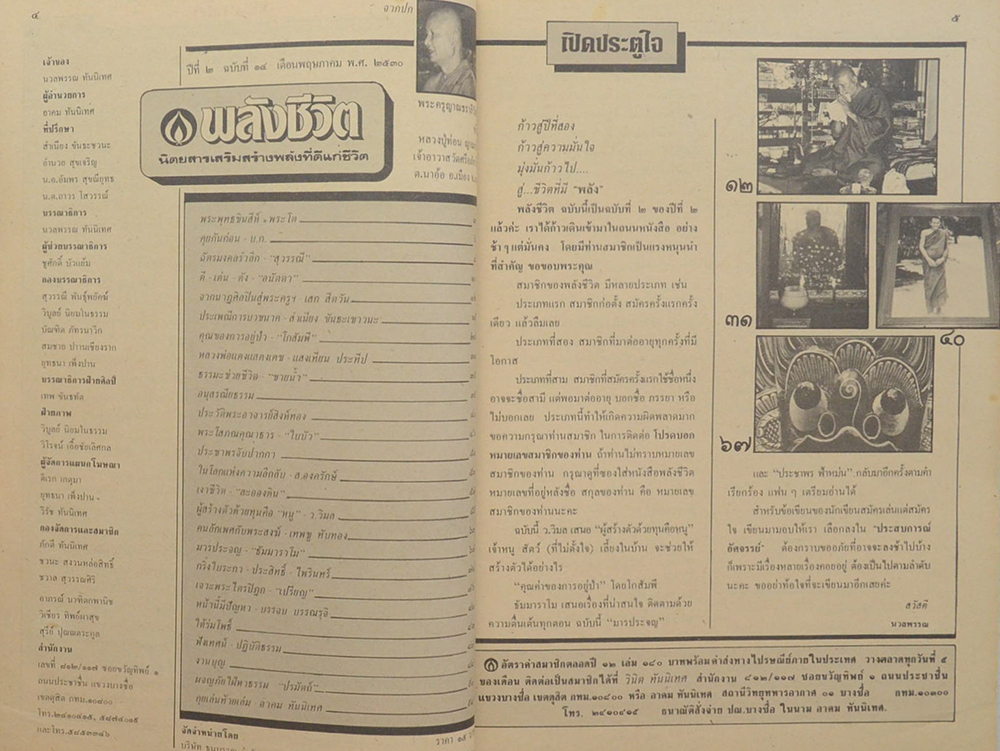 ๔
จากปก
ปีที่ ๒ ฉบับที่ ๑๔ เดือนพฤษภาคม พ.ศ. ๒๕๓๐
พลังชีวิต
นิตยสารเสริมสร้างพลังที่ดีแก่ชีวิต
พระครูญาณ
หลวงปู่ท่อน
เจ้าอาวาสวัดศรี
ต.นาอ้อ อ.เมือง
เจ้าของ
นวลพรรณ ทันนิเทศ
ผู้อำนวยการ
อาคม ทันนิเทศ
ที่ปรึกษา
สำเนียง ขันธะชวนะ
อำนวย สุขเจริญ
น.อ.อัมพร สุขณียุทธ
น.ต.ถาวร โสวรรณ์
บรรณาธิการ
นวลพรรณ ทันนิเทศ
ผู้ช่วยบรรณาธิการ
ชูศักดิ์ บัวแย้ม
กองบรรณาธิการ
สุวรรณี พันธุ์พยัคฆ์
วิบูลย์ นิยมในธรรม
บัณฑิต ภัทรนาวิก
สมชาย ปานเชียงราก
ยุทธนา เพ็งปาน
บรรณาธิการฝ่ายศิลป์
เทพ ขันธทัต
ฝ่ายภาพ
วิบูลย์ นิยมในธรรม
วิโรจน์ เอื้อชัยเลิศกุล
ผู้จัดการแผนกโฆษณา
ดิเรก เกตุมา
ยุทธนา เพ็งปาน
วิรัช ทันนิเทศ
กองจัดการและสมาชิก
ภักดี ทันนิเทศ
ชวนะ สงวนหล่อสิทธิ์
ชวาล สุวรรณศิริ
อาภรณ์ นาฑีลกพานิช
วิเชียร ทิพย์ผาสุข
สุรีย์ ปุณณตระกูล
สำนักงาน
เลขที่ ๘๑๒/๑๑๗ ซอยขวัญทิพย์ ๑
ถนนประชาชื่น แขวงบางซื่อ
เขตดุสิต กทม.๑๐๘๐๐
พระพุทธชินสีห์ + พระโต
คุยกันก่อน - บ.ก.
ฉัตรมงคลรำลึก - "สุวรรณี"
ดี - เด่น - ดัง - "อมัตตา"
จากนาฏศิลปินสู่พระครูฯ - เสก สีตวัน
ประเพณีการบวชนาค - สำเนียง ขันธะเชาวนะ
คุณของการอยู่ป่า - "โกสัมพี"
หลวงพ่อแดงแสดงเดช - แสงเทียม ประทีป
ธรรมะช่วยชีวิต - "ชายน้ำ"
อนุสรณียธรรม
ประวัติพระอาจารย์สิงห์ทอง
พระโสภณคุณาธาร - "ใบบัว"
ประชาพรจับปากกา
ในโลกแห่งความลึกลับ - ส.องครักษ์
เงาชีวิต - "ละอองดิน"
ผู้สร้างตัวด้วยทุนคือ "หนู" - ว.วิมล
คนลักเพศกับพระสงฆ์ - เทพชู ทับทอง
มารประจญ - "ธัมมาราโม"
กริ่งโบระกา - ประสิทธิ์ - ไพรินทร์
เจาะพระไตรปิฎก - "เปรียญ"
หน้านี้มีปัญหา - บรรจบ บรรณรุจิ
ใต้ร่มโพธิ์
ฟังเทศน์ - ปฏิบัติธรรม
งานบุญ
ผจญภัยใต้หาธรรม - "ปรมัตถ์"
คุยเล่นท้ายเล่ม - อาคม ทันนิเทศ
จัดจำหน่ายโดย
ราคา ๑๕
๕
เปิดประตูใจ
ก้าวสู่ปีที่สอง
ก้าวสู่ความมั่นใจ
มุ่งมั่นก้าวไป....
สู่...ชีวิตที่มี "พลัง"
พลังชีวิต ฉบับนี้เป็นฉบับที่ ๒ ของปีที่ ๒
แล้วค่ะ เราได้ก้าวเดินเข้ามาในถนนหนังสือ อย่าง
ช้า ๆ แต่มั่นคง โดยมีท่านสมาชิกเป็นแรงหนุนนำ
ที่สำคัญ ขอขอบพระคุณ
สมาชิกของพลังชีวิต มีหลายประเภท เช่น
ประเภทแรก สมาชิกก่อตั้ง สมัครครั้งแรกครั้ง
เดียว แล้วลืมเลย
ประเภทที่สอง สมาชิกที่มาต่ออายุทุกครั้งที่มี
โอกาส
ประเภทที่สาม สมาชิกที่สมัครครั้งแรกใช้ชื่อหนึ่ง
อาจจะชื่อสามี แต่พอมาต่ออายุ บอกชื่อ ภรรยา หรือ
ไม่บอกเลย ประเภทนี้ทำให้เกิดความผิดพลาดมาก
ขอความกรุณาท่านสมาชิก ในการติดต่อ โปรดบอก
หมายเลขสมาชิกของท่าน ถ้าท่านไม่ทราบหมายเลข
สมาชิกของท่าน กรุณาดูที่ซองใส่หนังสือพลังชีวิต
หมายเลขที่อยู่หลังชื่อ สกุลของท่าน คือ หมายเลข
สมาชิกของท่านนะคะ
ฉบับนี้ ว.วิมล เสนอ "ผู้สร้างตัวด้วยทุนคือหนู"
เจ้าหนู สัตว์ (ที่ไม่ตั้งใจ) เลี้ยงในบ้าน จะช่วยให้
สร้างตัวได้อย่างไร
"คุณค่าของการอยู่ป่า" โดยโกสัมพี
ธัมมาราโม เสนอเรื่องที่น่าสนใจ ติดตามด้วย
ความตื่นเต้นทุกตอน ฉบับนี้ "มารประจญ"
๑๒
๓๑
๔๐
๖๗
และ "ประชาพร ฟ้าหม่น" กลับมาอีกครั้งตามคำ
เรียกร้อง แฟน ๆ เตรียมอ่านได้
สำหรับข้อเขียนของนักเขียนสมัครเล่นแต่สมัคร
ใจ เขียนมามอบให้เรา เลือกลงใน "ประสบการณ์
อัศจรรย์" ต้องกราบขออภัยที่อาจจะลงช้าไปบ้าง
ก็เพราะมีเรื่องหลายเรื่องคอยอยู่ ต้องเป็นไปตามลำดับ
นะคะ ขออย่าท้อใจที่จะเขียนมาอีกเลยค่ะ
สวัสดี
นวลพรรณ
อัตราค่าสมาชิกตลอดปี ๑๒ เล่ม ๑๘๐ บาทพร้อมค่าส่งทางไปรษณีย์ภายในประเทศ วางตลาดทุกวันที่ ๕
ของเดือน ติดต่อเป็นสมาชิกได้ที่ วินิต ทันนิเทศ สำนักงาน ๘๑๒/๑๑๗ ซอยขวัญทิพย์ ๑ ถนนประชาชื่น
แขวงบางซื่อ เขตดุสิต กทม.๑๐๘๐๐ หรือ อาคม ทันนิเทศ สถานีวิทยุทหารอากาศ ๐๑ บางซื่อ กทม.๑๐๓๐๐
โทร. ๒๔๑๐๔๑๕ ธนาณัติสั่งจ่าย ปณ.บางซื่อ ในนาม อาคม ทันนิเทศ.